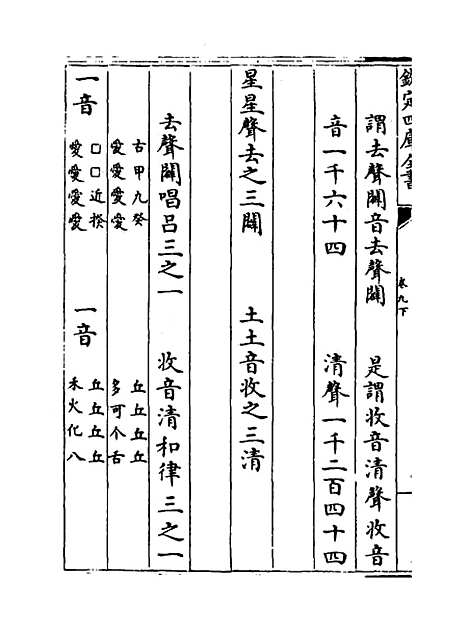 欽定四庫全書
卷九下
謂去聲闢音去聲闢 是謂收音清聲收音
音一千六十四 清聲一千二百四十四
星星聲去之三闢 土土音收之三清
去聲闢唱呂三之一 收音清和律三之一
古甲九癸 丘丘丘丘
愛愛愛愛 多可个舌
一音 □□近揆 一音 丘丘丘丘
愛愛愛愛 禾火化八